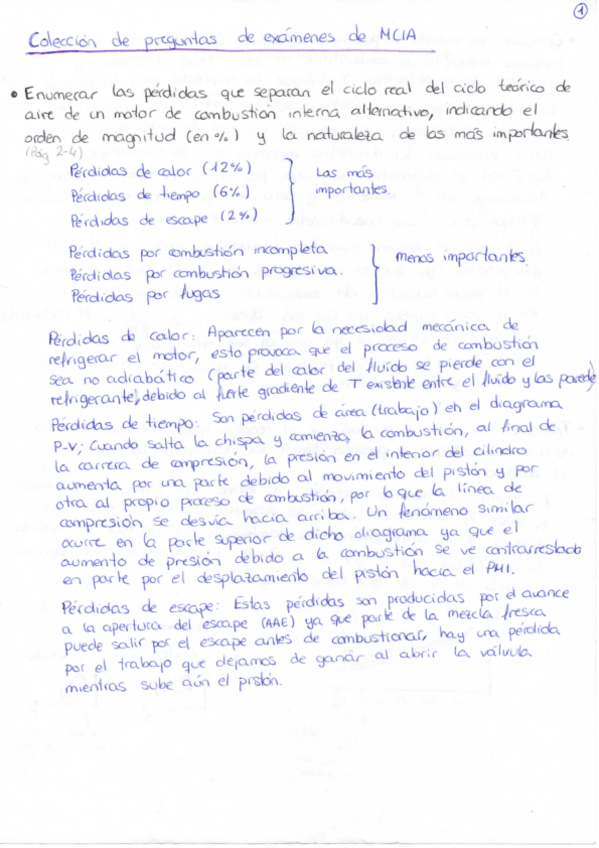 1
Colección de preguntas de exámenes de MCIA
• Enumerar las pérdidas que separan el ciclo real del ciclo teórico de
aire de un motor de combustión interna alternativo, indicando el
orden de magnitud (en %) y la naturaleza de las más importantes.
(Pág 2-4)
Pérdidas de calor (12%)
Pérdidas de tiempo (6%)
Pérdidas de escape (2%)
Las más
importantes.
Pérdidas por combustión incompleta
Pérdidas por combustión progresiva.
Pérdidas por fugas
menos importantes
Pérdidas de calor: Aparecen por la necesidad mecánica de
refrigerar el motor, esto provoca que el proceso de combustión
sea no adiabático (parte del calor del fluido se pierde con el
refrigerante, debido al fuerte gradiente de T existente entre el fluido y las paredes)
Pérdidas de tiempo: Son pérdidas de área (trabajo) en el diagrama
P-V; Cuando salta la chispa y comienza la combustión, al final de
la carrera de compresión, la presión en el interior del cilindro
aumenta por una parte debido al movimiento del pistón y por
otra al propio proceso de combustión, por lo que la línea de
compresión se desvía hacia arriba. Un fenómeno similar
ocurre en la parte superior de dicho diagrama ya que el
aumento de presión debido a la combustión se ve contrarrestado
en parte por el desplazamiento del pistón hacia el PMI.
Pérdidas de escape: Estas pérdidas son producidas por el avance
a la apertura del escape (AAE) ya que parte de la mezcla fresca
puede salir por el escape antes de combustionar, hay una pérdida
por el trabajo que dejamos de ganar al abrir la válvula
mientras sube aún el pistón.